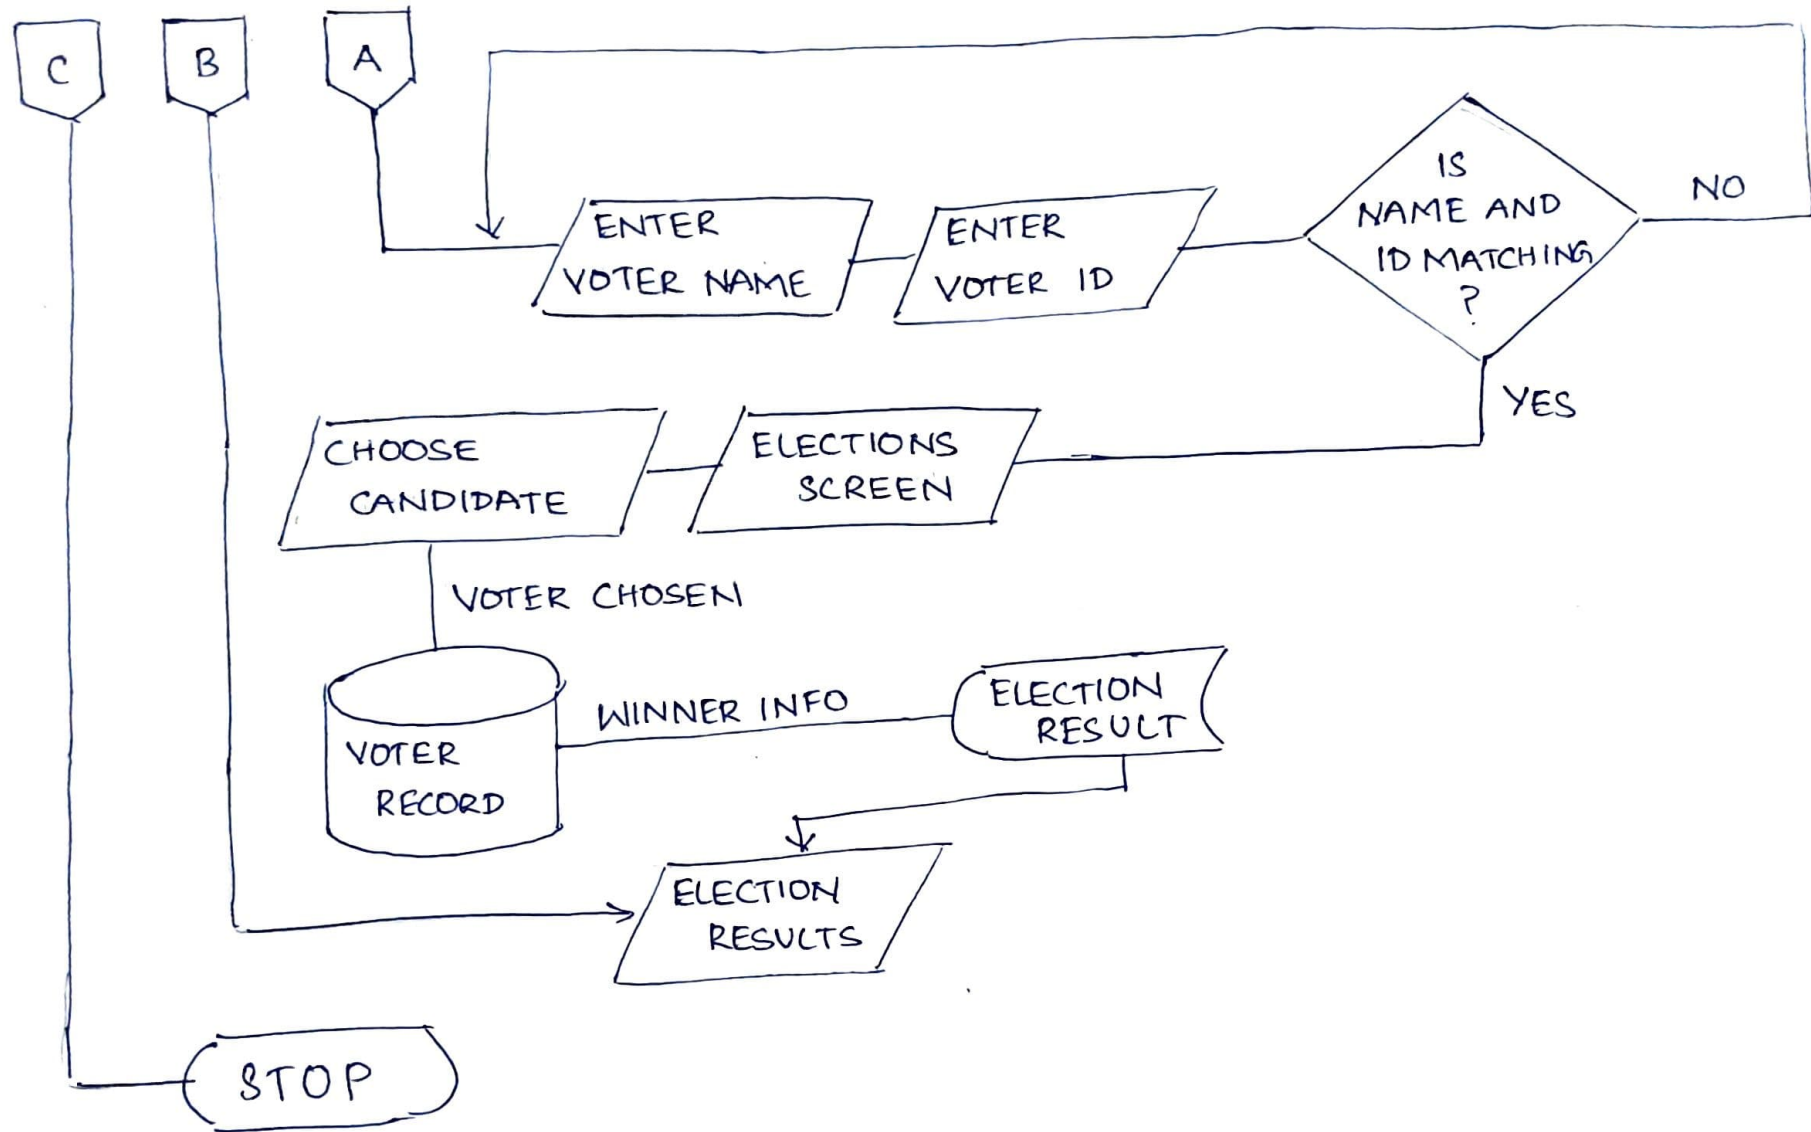 C
B
A
ENTER
VOTER NAME
ENTER
VOTER ID
IS
NAME AND
ID MATCHING
?
NO
YES
ELECTIONS
SCREEN
CHOOSE
CANDIDATE
VOTER CHOSEN
VOTER
RECORD
WINNER INFO
ELECTION
RESULT
ELECTION
RESULTS
STOP